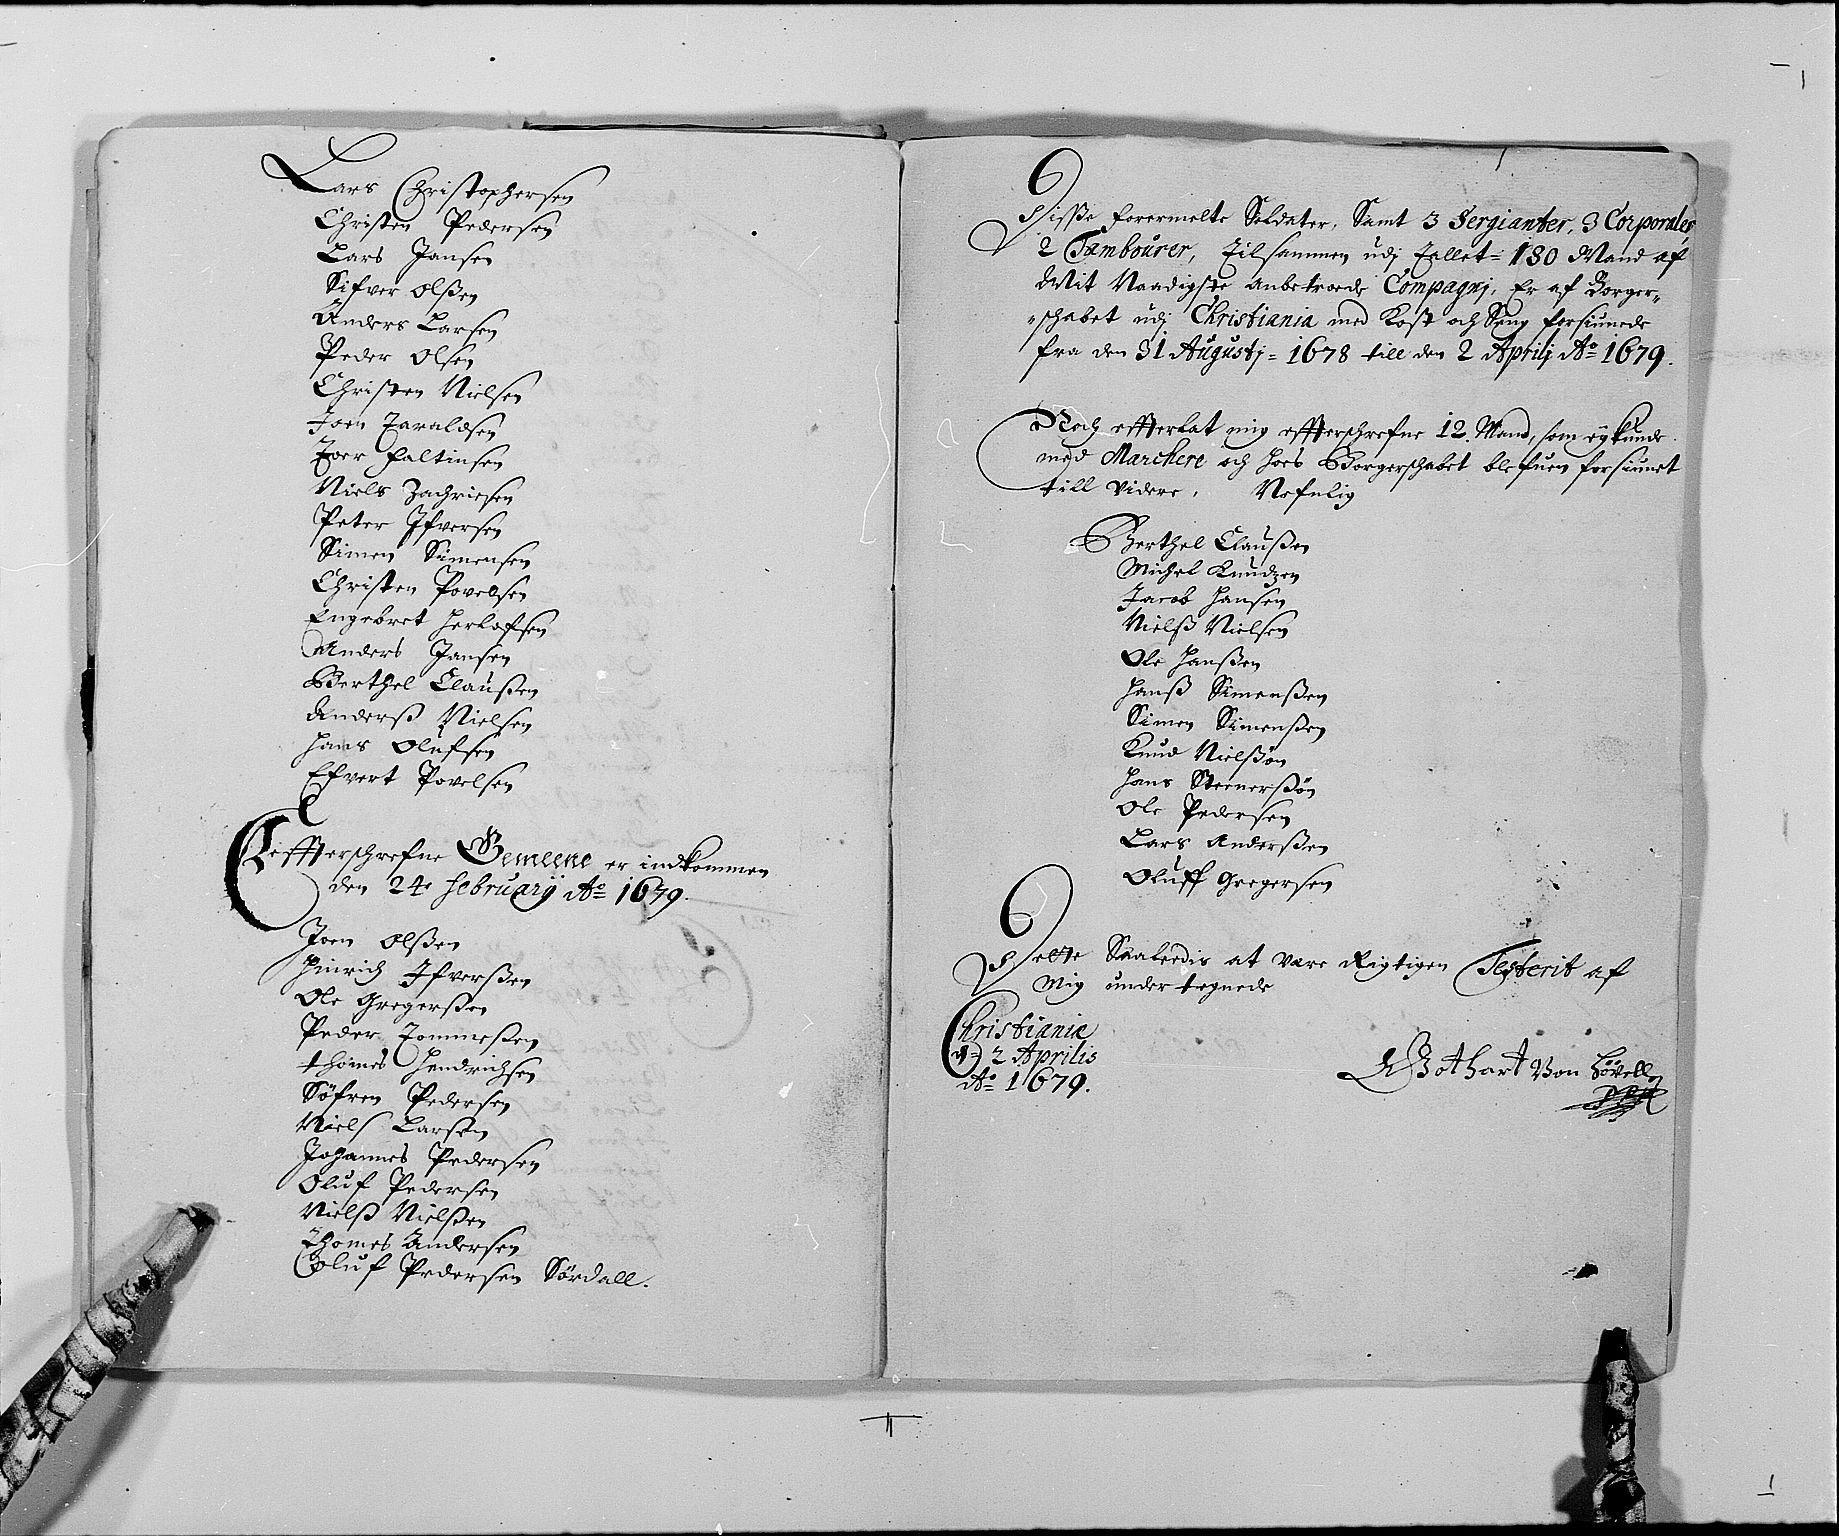 Lars Christophersen
Christen Pedersen
Lars Jansen
Sifver Olßen
Anders Larsen
Peder Olsen
Christen Nielsen
Joen Haraldsen
Iver Faltinsen
Niels Zachriesen
Peter Ifversen
Simen Simensen
Christen Povelsen
Engebret Herlofsen
Anders Jansen
Berthel Claußen
Anderß Nielsen
Hans Olufsen
Efvert Povelsen
Effterschrefne Gemeene er indkommen
den 24 Februarij Ao 1679.
Joen Olßen
Hinrich Ifverßen
Ole Gregerßen
Peder Tommeßen
Thomes Hendrichsen
Söfren Pedersen
Niels Larsen
Johannes Pedersen
Oluf Pedersen
Nielß Nielßen
Thomes Andersen
Oluf Pedersen Sördall.
Disße forermelte Soldater, Samt 3 Sergianter, 3 Corporales,
2 Tambourer, Tilsammen udj Tallet = 130 Mand af
Mit Naadigste anbetroede Compagnj, Er af Borger-
schabet udj Christiania med Kost och Seng forsiunede
fra den 31 Augustj = 1678 till den 2 Aprilj Ao 1679.
Noch effterlat mig effterschrefne 12. Mand, som ey kunde
med Marchere och hoes Borgerschabet blefuen forsiunet
till videre, Nefnlig
Berthel Claußen
Michel Knudzen
Jacob Hansen
Nielß Nielsen
Ole Hanßen
Hanß Simenßen
Simen Simenßen
Knud Nielßön
Hans Steenerßön
Ole Pedersen
Lars Anderßen
Oluff Gregersen
Dette Saaledis at være Rigtigen Testerit af
Mig undertegnede
Christiania
d= 2 Aprilis
Ao 1679.
Gothart Von Hövell